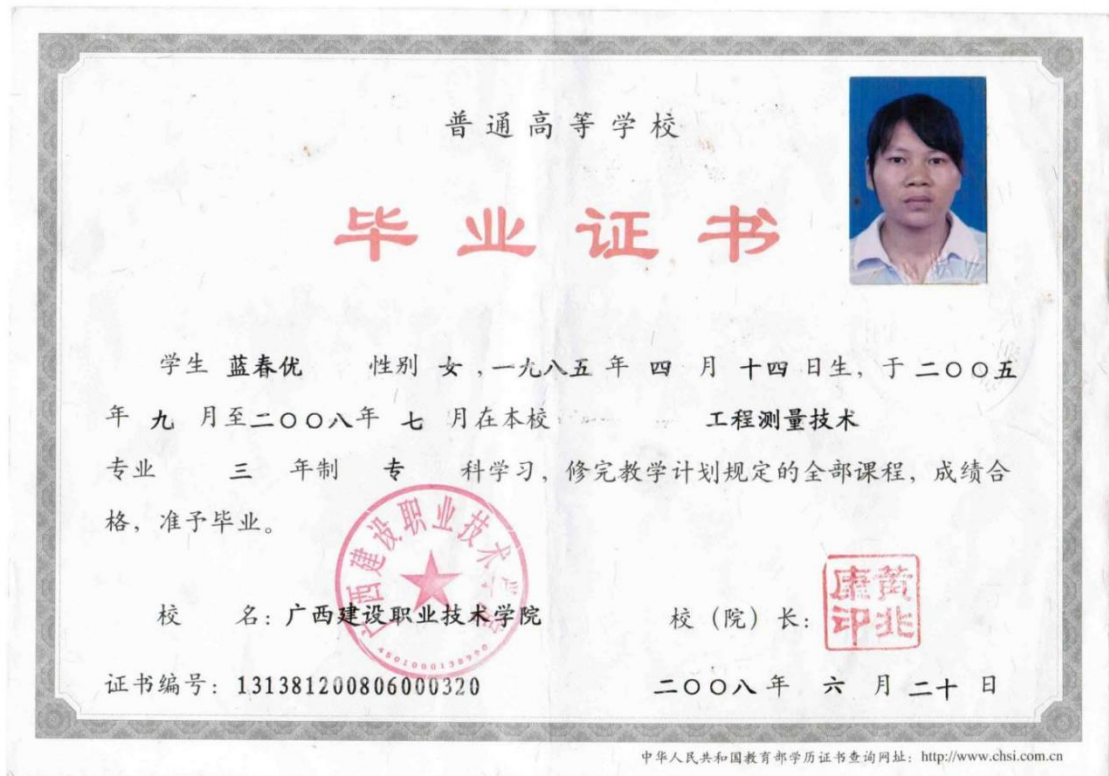 普通高等学校
毕业证书
学生 蓝春优 性别 女，一九八五 年 四 月 十四 日生，于 二〇〇五
年 九 月至二〇〇八年 七 月在本校 工程测量技术
专业 三 年制 专 科学习，修完教学计划规定的全部课程，成绩合
格，准予毕业。
广西建设职业技术学院
校 名：广西建设职业技术学院
校（院）长：
黄北康印
证书编号：131381200806000320
二〇〇八 年 六 月 二十 日
中华人民共和国教育部学历证书查询网址：http://www.chsi.com.cn